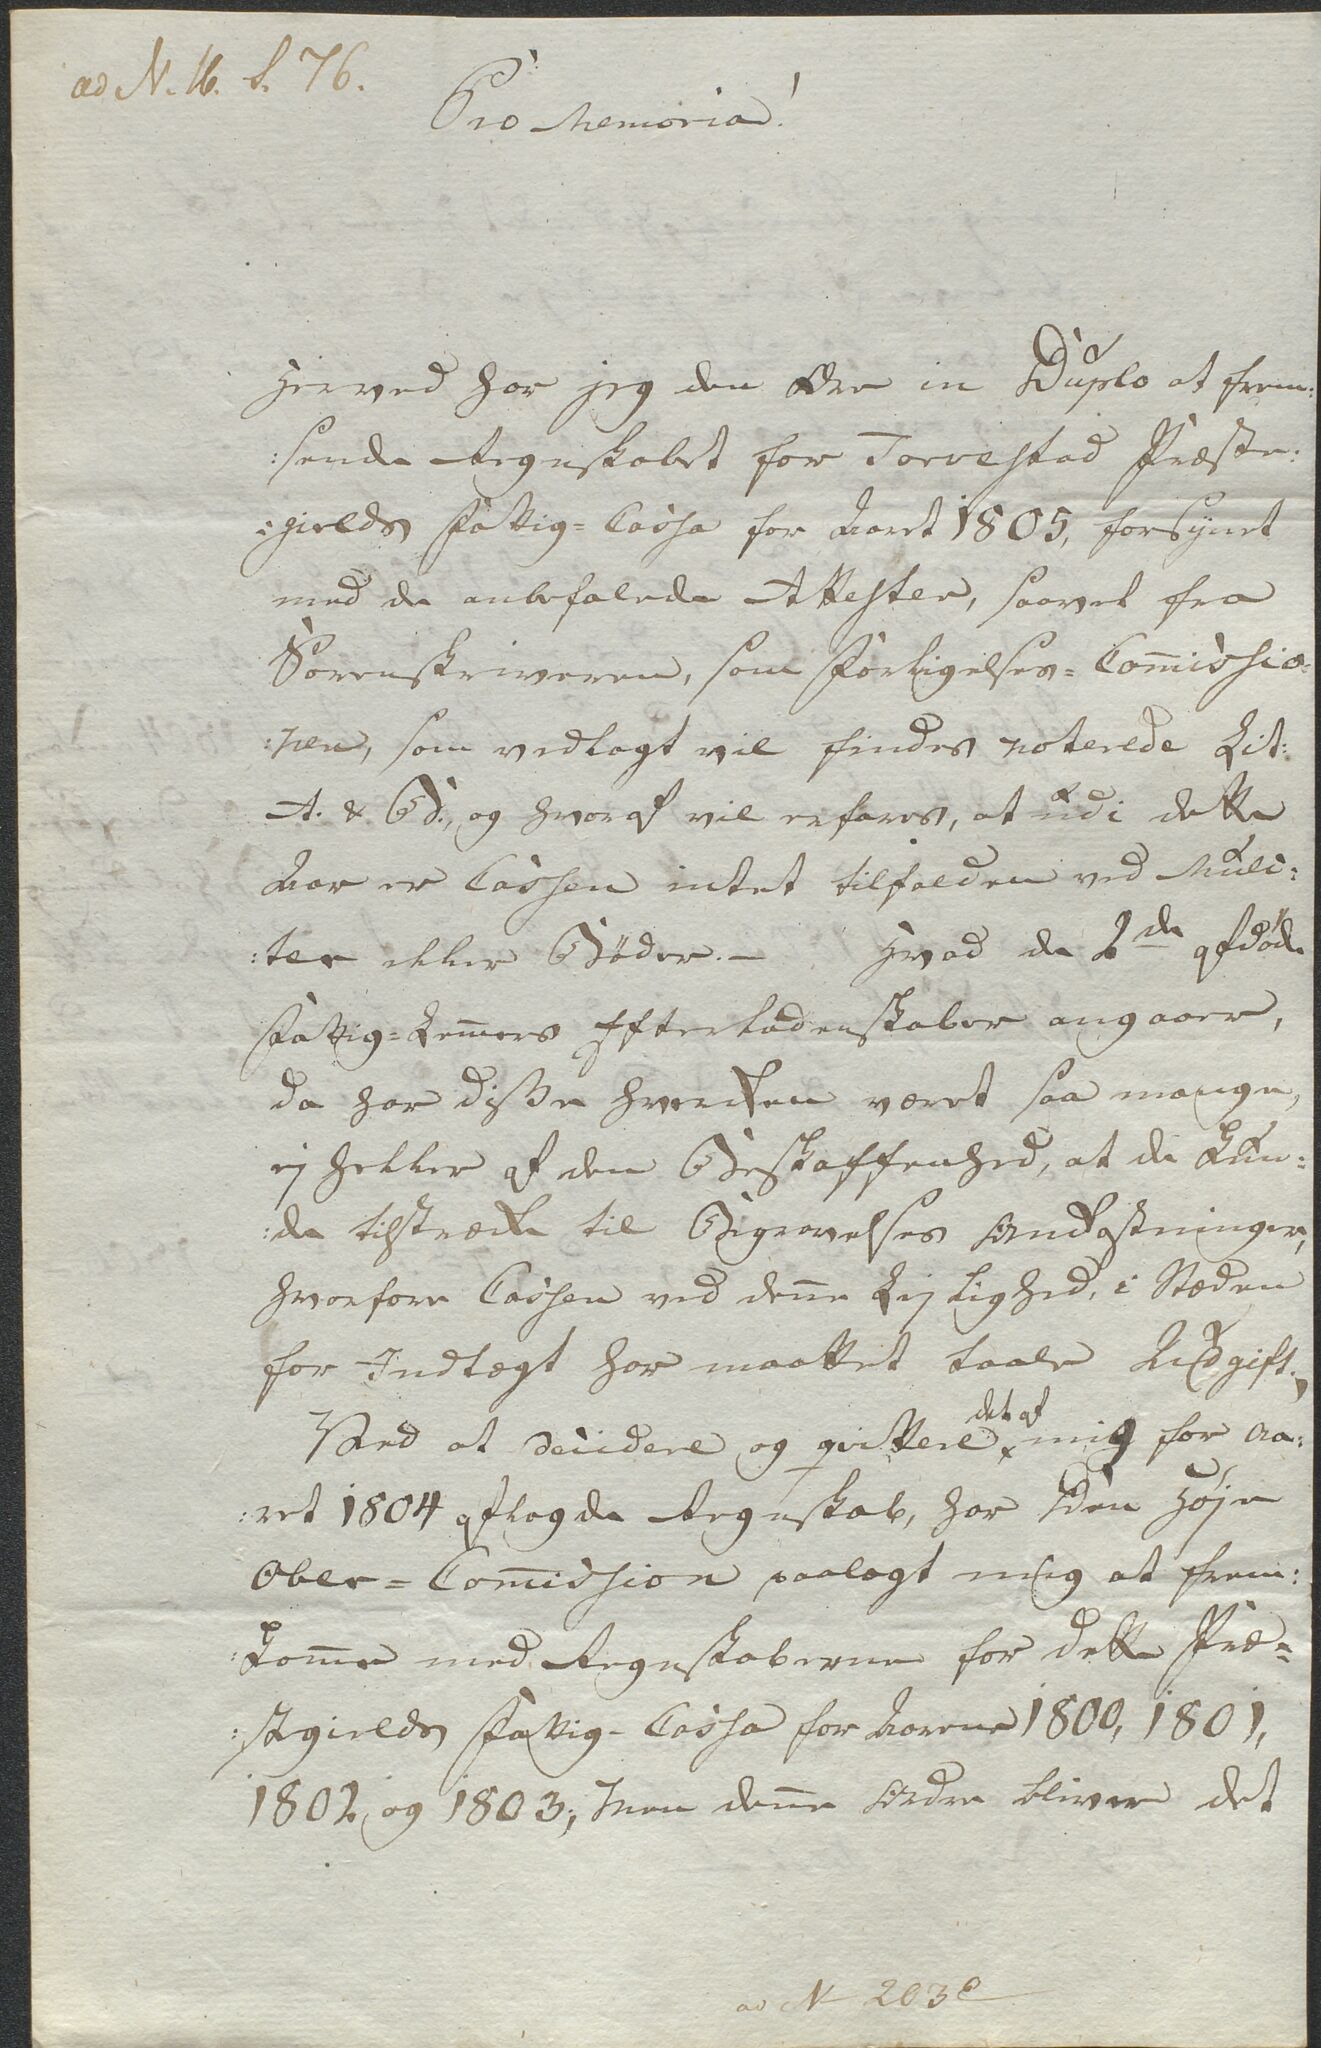 ad N. 16. S. 76.
Pro Memoria!
Herved har jeg den Ære in Duplo at frem:
:sende Regnskabet for Torvestad Præste:
:gields Fattig=Cassa for Aaret 1805, forsÿnet
med de anbefalede Attester, saavel fra
Sorenskriveren, som Forligelses=Com̄issio:
:nen, som vedlagt vil findes noterede Lit:
A. & B., og hvoraf vil erfares, at udi dette
Aar er Cassen intet tilfalden ved Mulc:
:ter eller Bøder. – Hvad de 2de afdøde
Fattig=Lem̄ers Efterladenskaber angaaer,
da har disse hverken været saa mange,
ej heller af den Beskaffenhed, at de kun:
:de tilstrække til Begravelses Omkostninger,
hvorfore Cassen ved den̄e Lejlighed, i Stæden
for Indtægt har maattet taale Udgift.
Ved at decidere og qvittere det af mig for Aa:
:ret 1804 aflagde Regnskab, har Den Høje
Ober=Com̄ission paalagt mig at frem:
:kom̄e med Regnskaberne for dette Præ=
:stegields Fattig-Cassa for Aarene 1800, 1801,
1802, og 1803; Men den̄e Ordre bliver det
ad N 203